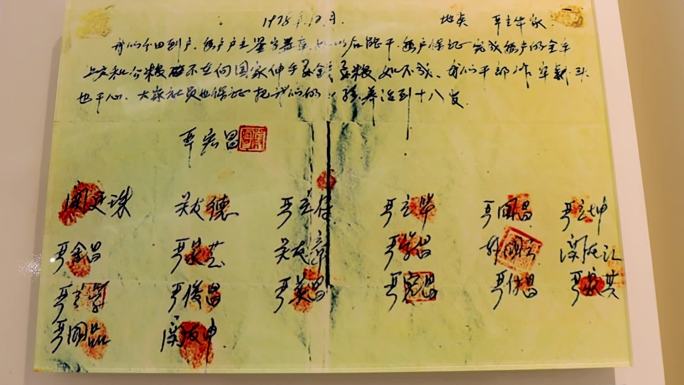 1978年12月 地点 严立华家
我们分田到户，每户户主签字盖章，如以后能干，每户保证完成每户的全年
上交和公粮，不在向国家伸手要钱要粮。如不成，我们干部作牢刹头
也干心，大家社员也保证把我们的小孩养活到十八岁。
严宏昌
关廷珠 关友德 严立付 严立华 严国昌 严立坤
严金昌 严家芝 关友章 严学昌 韩国云 关友江
严立学 严俊昌 严美昌 严宏昌 严付昌 严家其
严国品 关友申